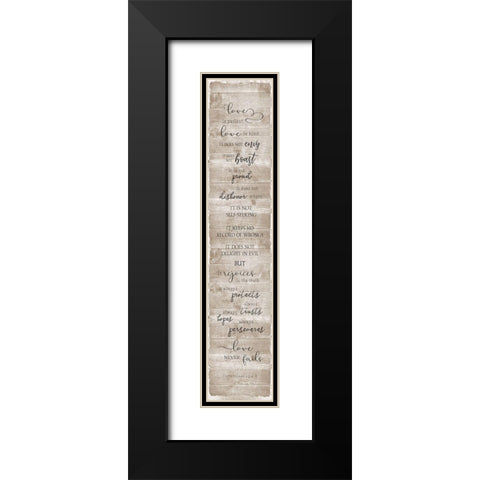 love
is patient
love is kind
it does not envy
it does not boast
it is not proud
it does not
dishonor others
IT IS NOT
SELF-SEEKING
IT KEEPS NO
RECORD OF WRONGS
IT DOES NOT
DELIGHT IN EVIL
BUT
rejoices
in the truth
it always
protects
always
trusts
always
hopes
always
perseveres
love
NEVER fails